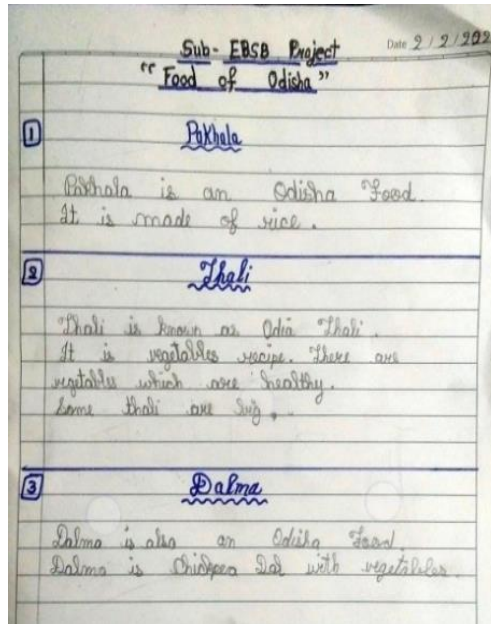 Sub- EBSB Project
Date 2/2/202
"Food of Odisha"
1
Pakhala
Pakhala is an Odisha Food.
It is made of rice.
2
Thali
Thali is known as Odia Thali.
It is vegetables recipe. There are
vegetables which are healthy.
Some thali are big.
3
Dalma
Dalma is also an Odisha Food.
Dalma is Chickpea Dal with vegetables.